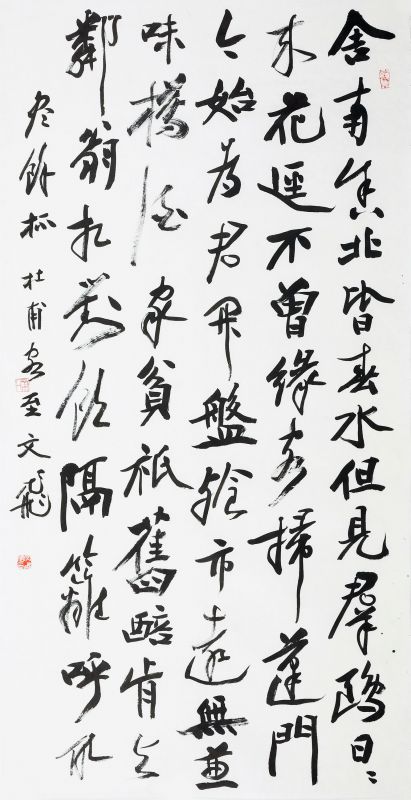 舍南舍北皆春水但見羣鷗日〻
来花逕不曾緣客掃蓬門
今始為君開盤飧市遠無兼
味樽酒家貧祇舊醅肯与
鄰翁相對飲隔籬呼取
尽餘杯 杜甫客至 文飛